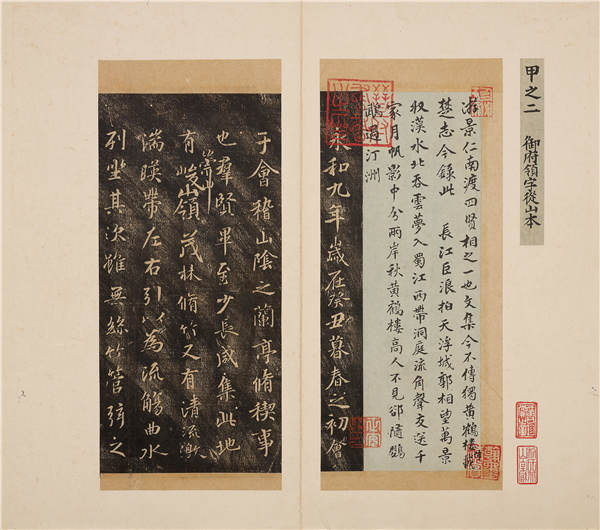 甲之二 御府領字從山本
游景仁南渡四賢相之一也文集今不傳獨黃鶴樓
楚志今錄此 長江巨浪拍天浮城郭相望萬景
収漢水北吞雲夢入蜀江西帶洞庭流角聲交送千
家月帆影中分兩岸秋黃鶴樓高人不見卻隨鸚
鵡過汀洲
永和九年歲在癸丑暮春之初會
于會稽山陰之蘭亭脩稧事
也羣賢畢至少長咸集此地
有崇山峻嶺茂林脩竹又有清流激
湍暎帶左右引以為流觴曲水
列坐其次雖無絲竹管弦之